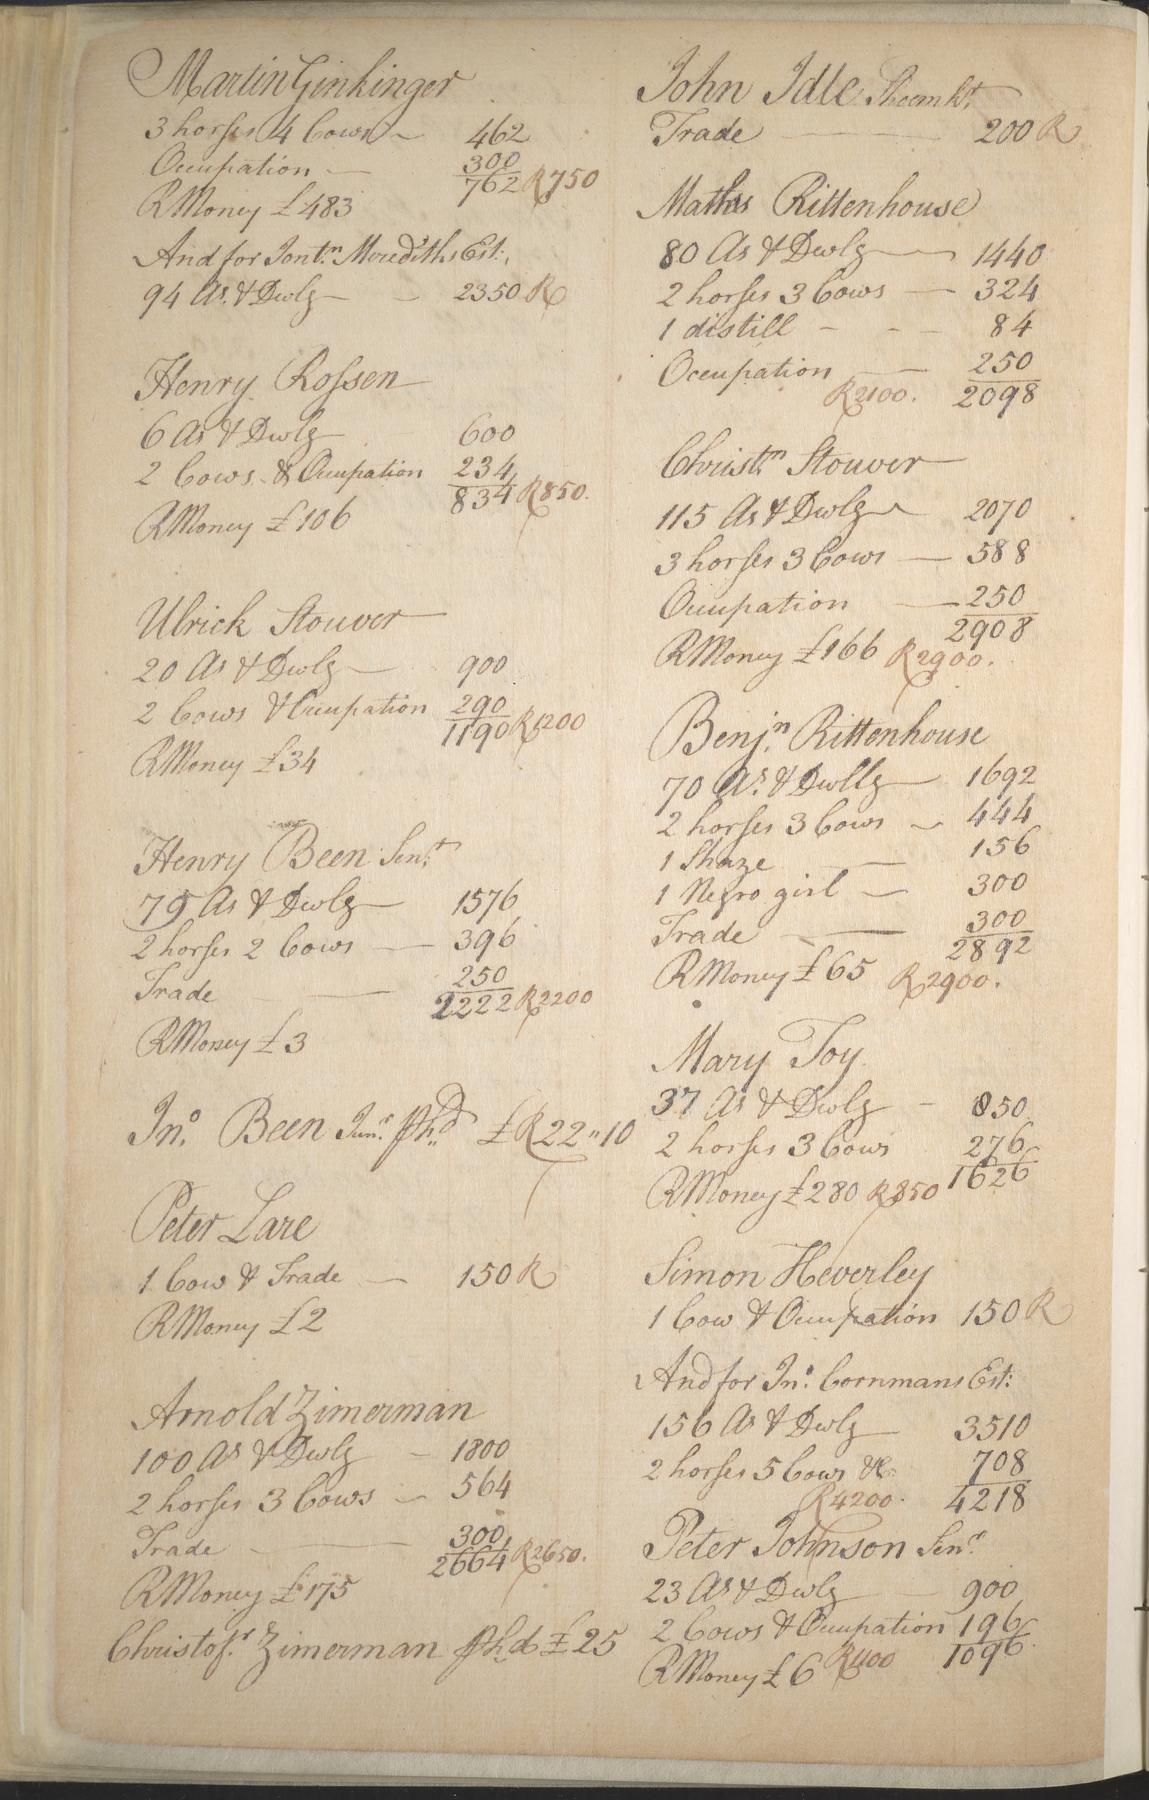 Martin Ginkinger
3 horses 4 Cows 462
Occupation 300
762 R750
RMoney £483
And for Jontn. Merediths Est:
94 As. & Dwlg 2350 R
Henry Rossen
6 As & Dwlg 600
2 Cows & Occupation 234
834 R850.
RMoney £106
Ulrick Stouver
20 As & Dwlg 900
2 Cows & Occupation 290
1190 R1200
RMoney £34
Henry Been Senr.
79 As & Dwlg 1576
2 horses 2 Cows 396
Trade 250
2222 R2200
RMoney £3
Jno. Been Junr. phd £R22"10
Peter Lare
1 Cow & Trade 150 R
RMoney £2
Arnold Zimerman
100 As & Dwlg 1800
2 horses 3 Cows 564
Trade 300
2664 R2650.
RMoney £175
Christofr. Zimerman phd £25
John Idle Shoemkr.
Trade 200 R
Mathss Rittenhouse
80 As & Dwlg 1440
2 horses 3 Cows 324
1 distill 84
Occupation 250
R2100. 2098
Christn. Stouver
115 As & Dwlg 2070
3 horses 3 Cows 588
Occupation 250
2908
RMoney £166 R2900.
Benjn. Rittenhouse
70 As. & Dwllg 1692
2 horses 3 Cows 444
1 Shaze 156
1 Negro girl 300
Trade 300
2892
RMoney £65 R2900.
Mary Toy
37 As & Dwlg 850
2 horses 3 Cows 276
1626
RMoney £280 R850
Simon Heverley
1 Cow & Occupation 150 R
And for Jno. Cornmans Est:
156 As & Dwlg 3510
2 horses 5 Cows &c. 708
R4200. 4218
Peter Johnson Senr.
23 As & Dwlg 900
2 Cows & Occupation 196
1096
RMoney £6 R1100